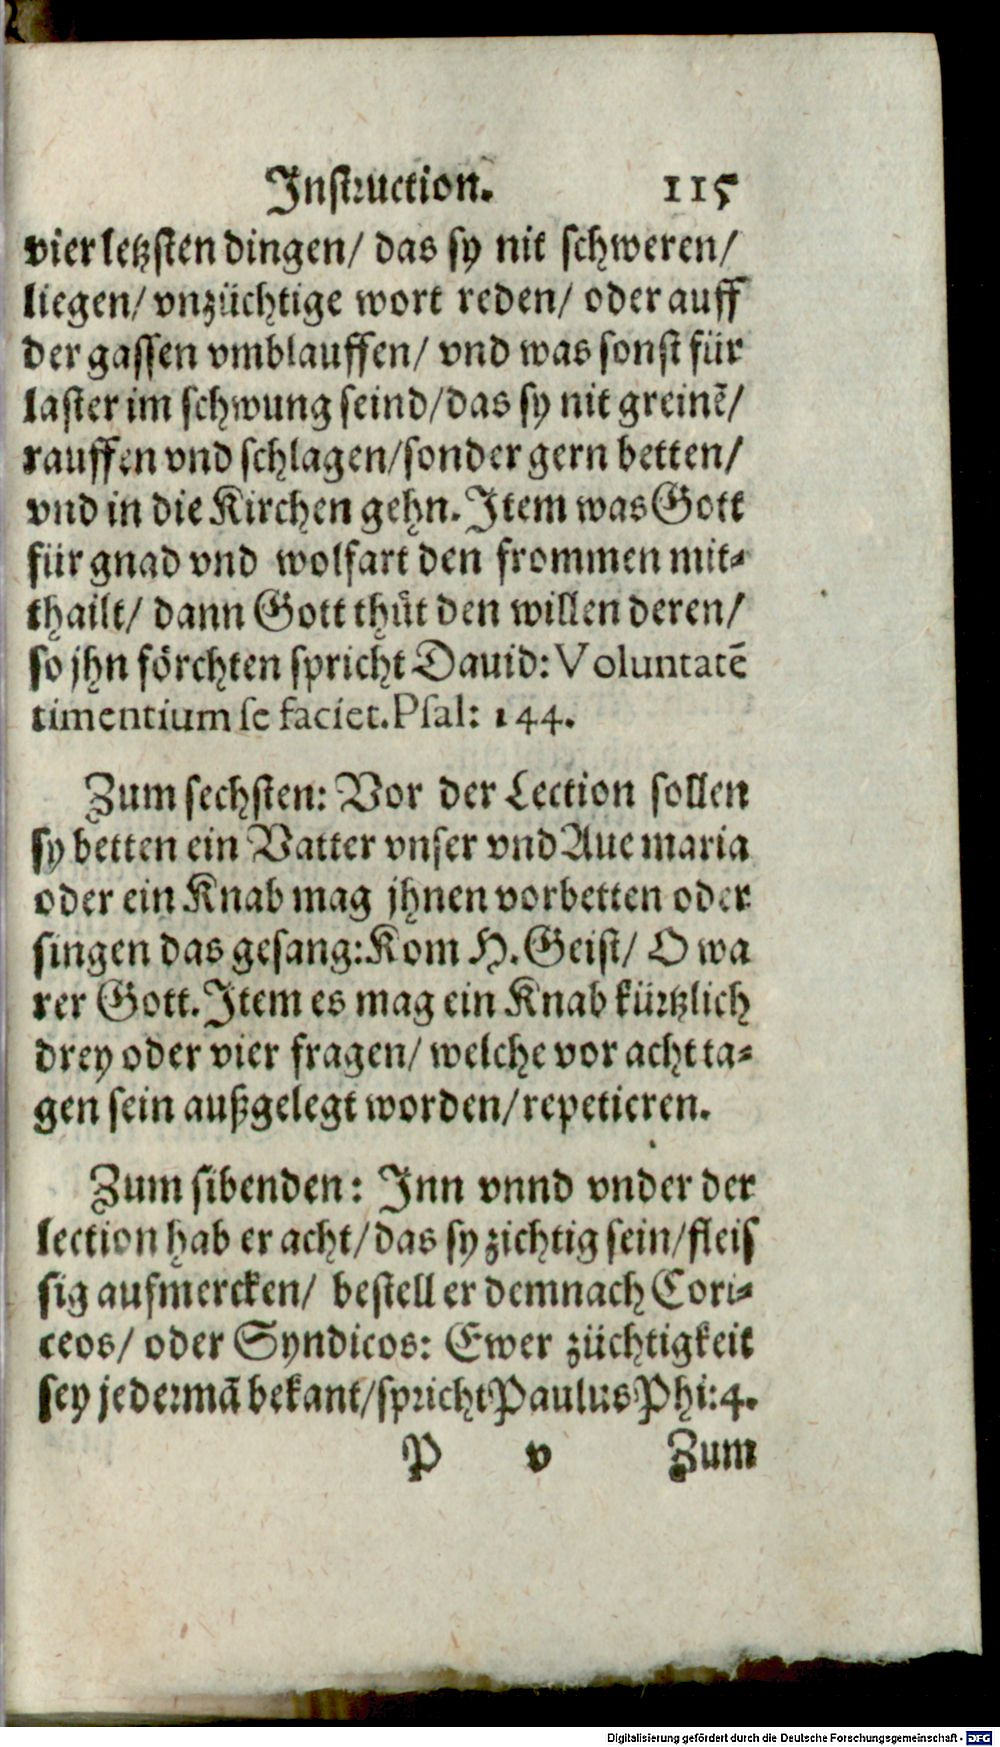 Instruction. 115
vier letzsten dingen/ das sy nit schweren/
liegen/ vnzüchtige wort reden/ oder auff
der gassen vmblauffen/ vnd was sonst für
laster im schwung seind/das sy nit greinē/
rauffen vnd schlagen/sonder gern betten/
vnd in die Kirchen gehn. Item was Gott
für gnad vnd wolfart den frommen mit-
thailt/ dann Gott thůt den willen deren/
so jhn förchten spricht Dauid: Voluntatē
timentium se faciet. Psal: 144.
Zum sechsten: Vor der Lection sollen
sy betten ein Vatter vnser vnd Aue maria
oder ein Knab mag jhnen vorbetten oder
singen das gesang: Kom H. Geist/ O wa
rer Gott. Item es mag ein Knab kürtzlich
drey oder vier fragen/ welche vor acht ta-
gen sein außgelegt worden/repetieren.
Zum sibenden: Inn vnnd vnder der
lection hab er acht/das sy zichtig sein/fleis
sig aufmercken/ bestell er demnach Cori-
ceos/ oder Syndicos: Ewer züchtigkeit
sey jedermā bekant/spricht Paulus Phi: 4.
P v Zum
Digitalisierung gefördert durch die Deutsche Forschungsgemeinschaft - DFG